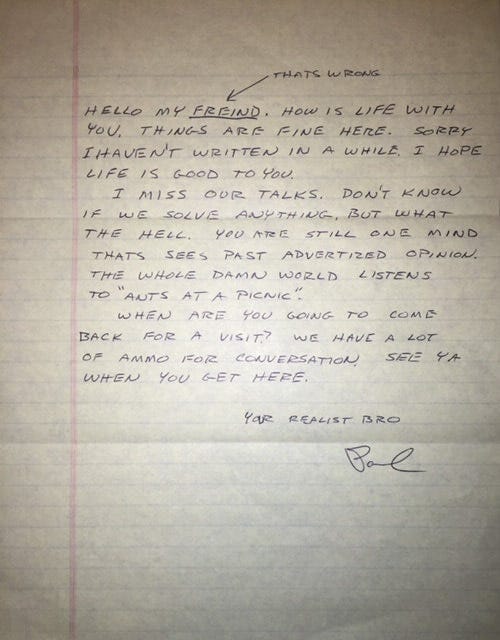 THATS WRONG
HELLO MY FREIND. HOW IS LIFE WITH
YOU. THINGS ARE FINE HERE. SORRY
I HAVEN'T WRITTEN IN A WHILE. I HOPE
LIFE IS GOOD TO YOU.
I MISS OUR TALKS. DON'T KNOW
IF WE SOLVE ANYTHING, BUT WHAT
THE HELL. YOU ARE STILL ONE MIND
THATS SEES PAST ADVERTIZED OPINION.
THE WHOLE DAMN WORLD LISTENS
TO "ANTS AT A PICNIC".
WHEN ARE YOU GOING TO COME
BACK FOR A VISIT? WE HAVE A LOT
OF AMMO FOR CONVERSATION. SEE YA
WHEN YOU GET HERE.
YOUR REALIST BRO
Paul